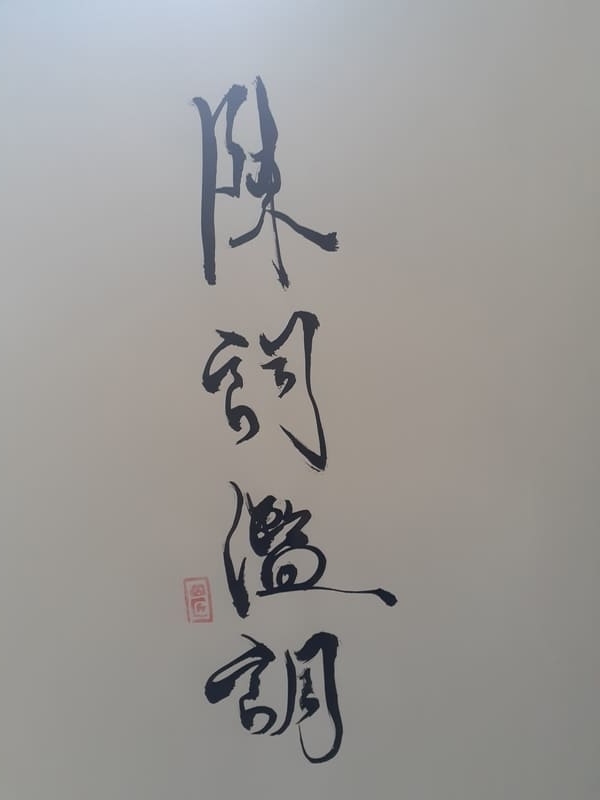 陳詞濫調